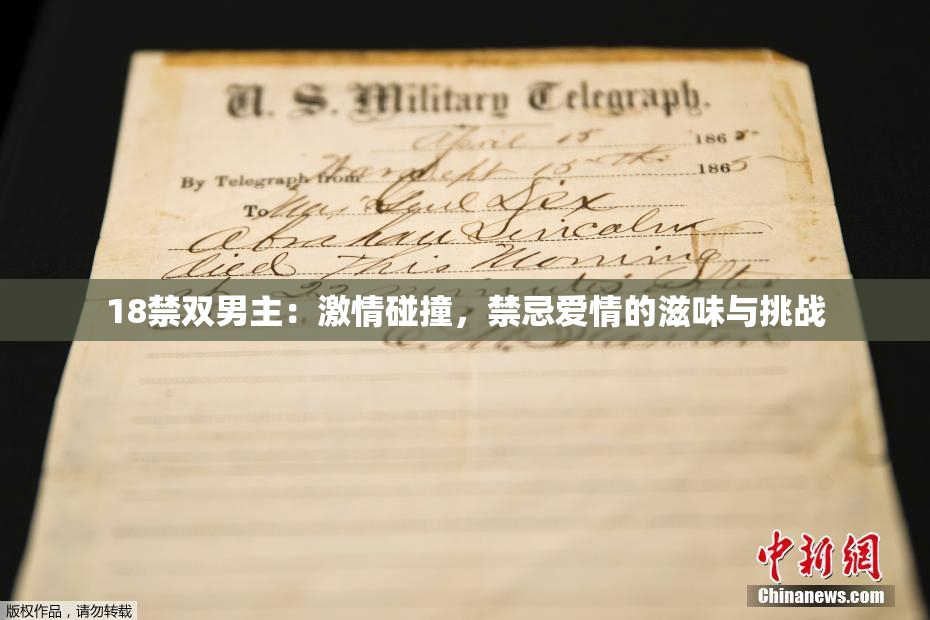 U. S. Military Telegraph.
April 15 1865
By Telegraph from War Dept 15th 1865
To Maj Genl Dix
Abraham Lincoln
died This Morning
at 22 minutes after
18禁双男主：激情碰撞，禁忌爱情的滋味与挑战
E. M. Stanton
中新網
Chinanews.com
版权作品，请勿转载